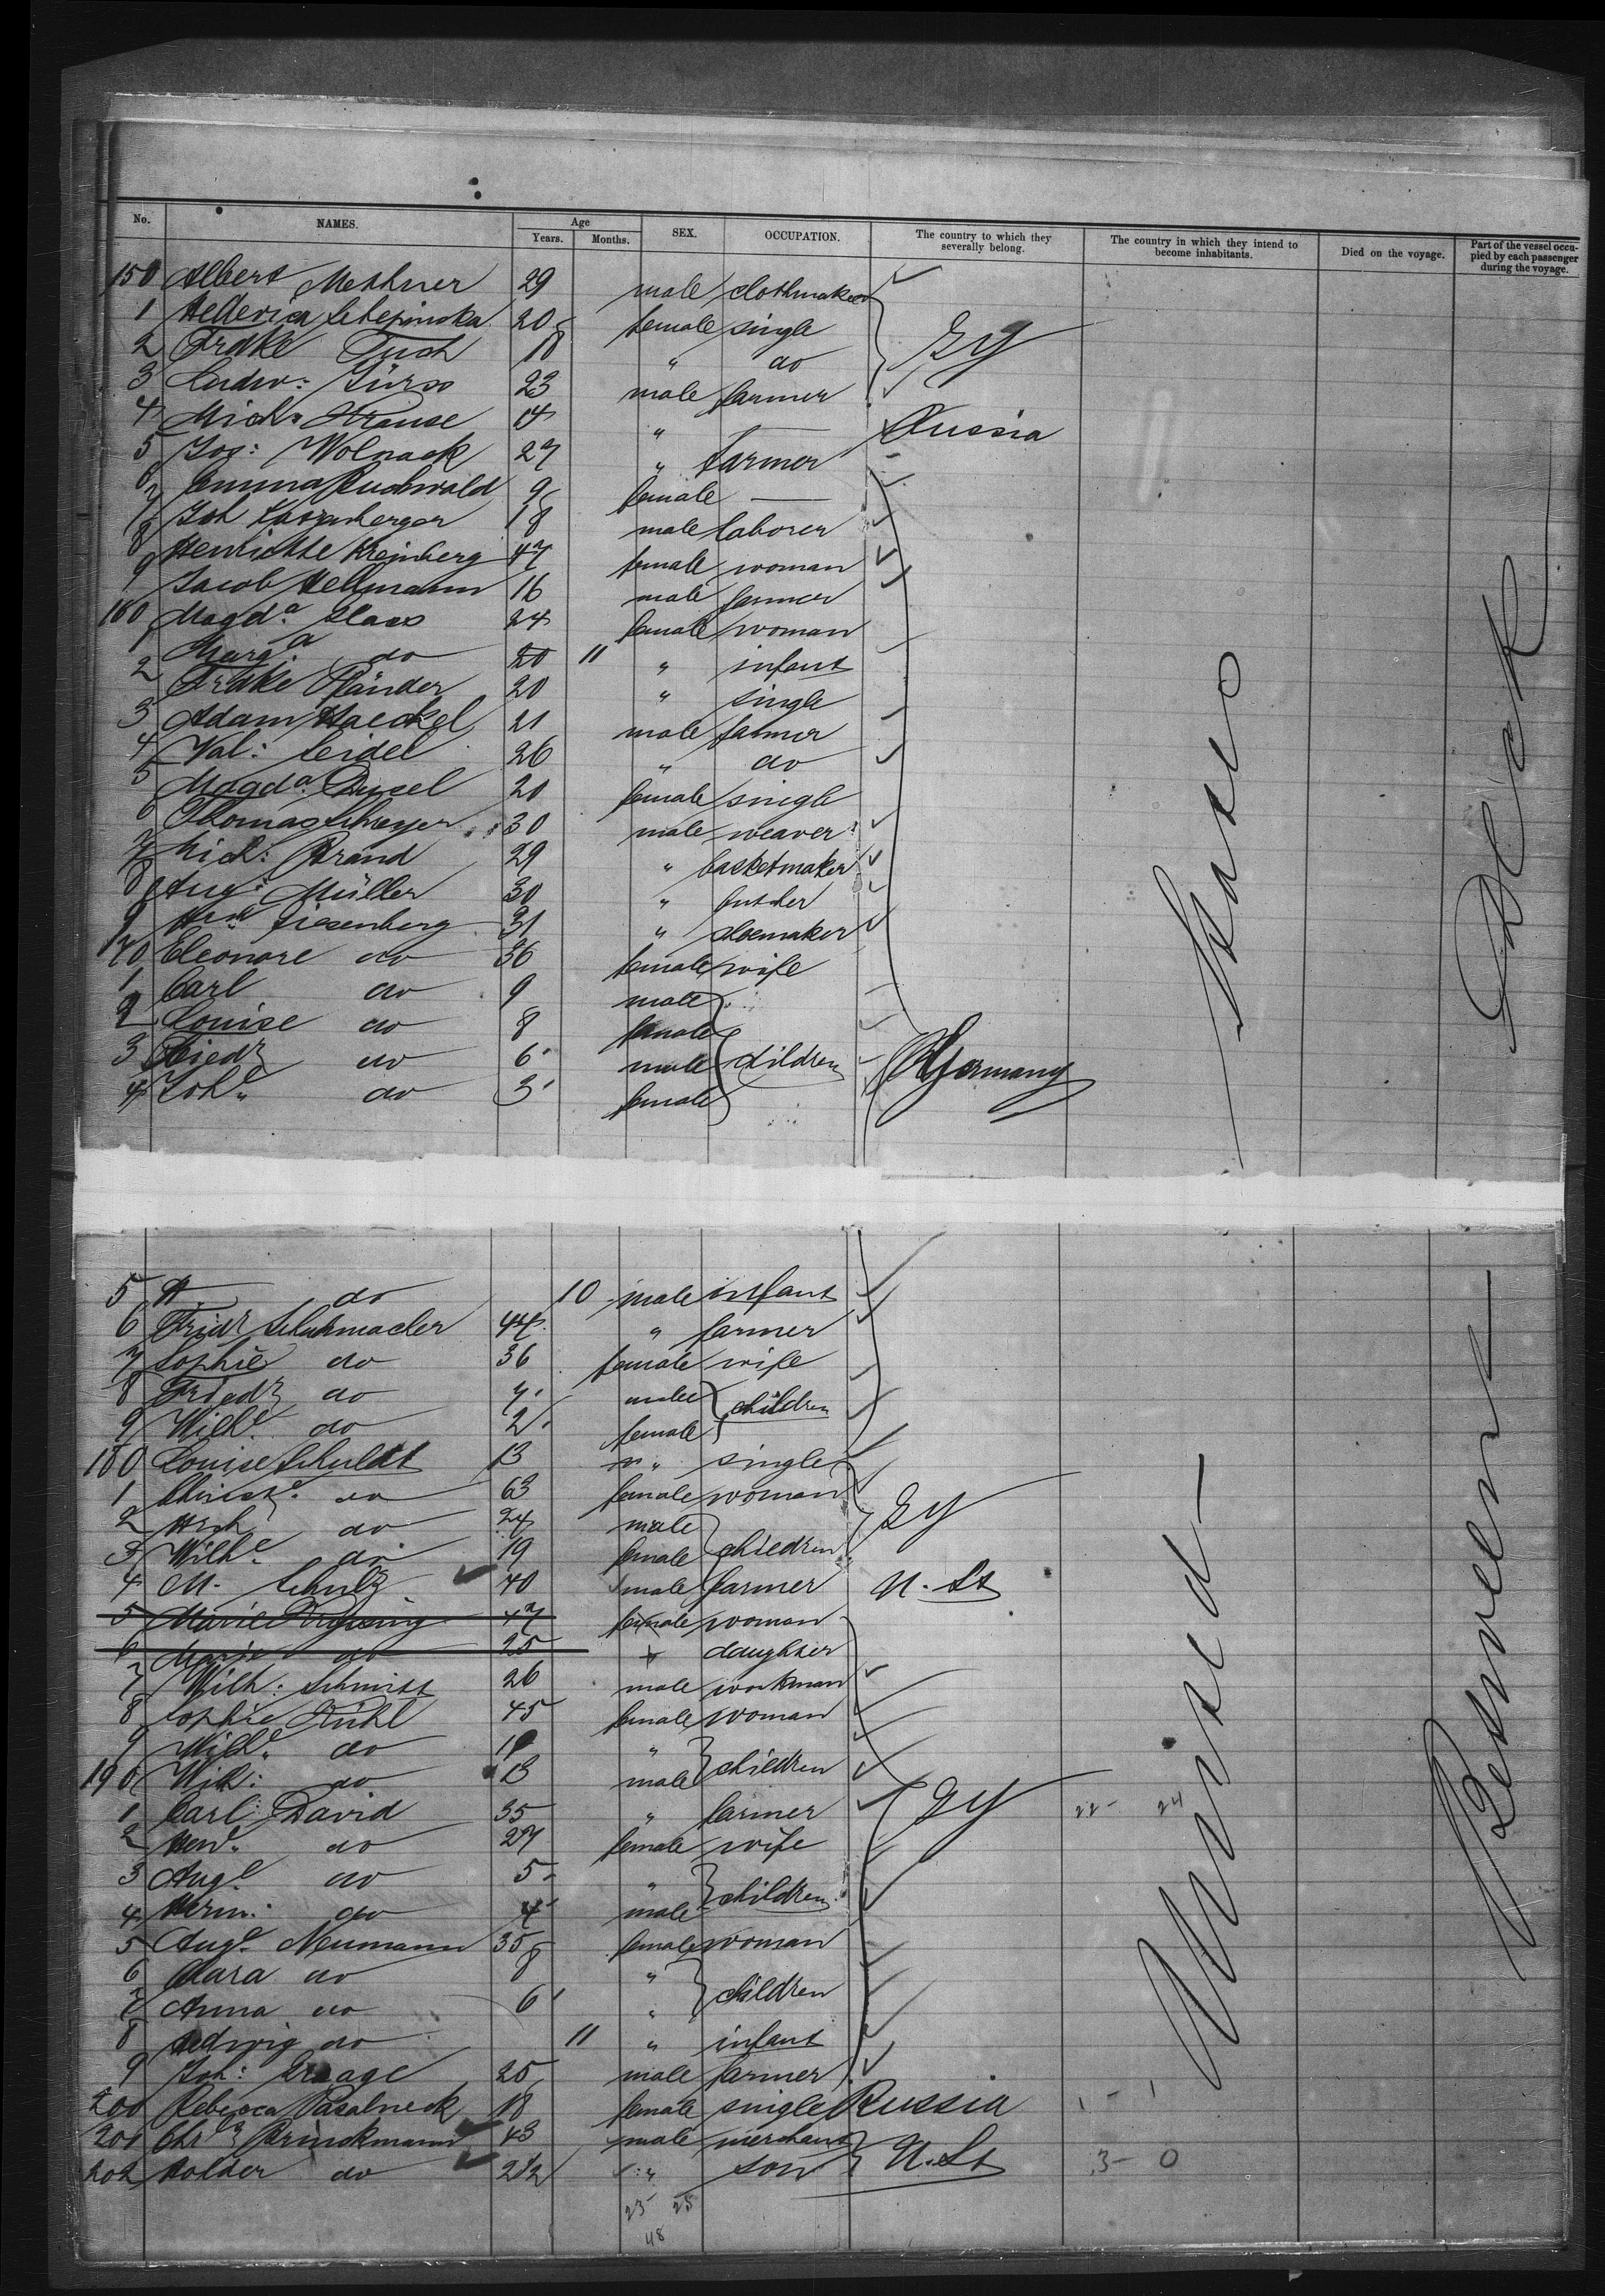 No. NAMES. Age Years. Months. SEX. OCCUPATION. The country to which they severally belong. The country in which they intend to become inhabitants. Died on the voyage. Part of the vessel occupied by each passenger during the voyage.
150 Albert Methner 29 male clothmaker
1 20 female single
2 Frdke Tuch 18 " do Gy
3 Ludw: Jürss 23 male farmer
4 Mich: Krause 4 " — Russia
5 Jos: Wolnack 27 " farmer
6 Emma Buchwald 9 female —
7 Joh 18 male laborer
8 Henriette Kreinberg 47 female woman
9 Jacob Hellmann 16 male farmer
160 Magda. Claas 24 female woman
1 Marga. do 11 " infant
2 Frdke Pfänder 20 " single
3 Adam Haeckel 21 male farmer
4 Val: Seidel 26 " do
5 Magda. 20 female single
6 Thomas Scheyer 30 male weaver
7 Mich: Brand 29 " basketmaker
8 Aug: Müller 30 " butcher
9 Giesenberg 31 " shoemaker
170 Eleonore do 36 female wife
1 Carl do 9 male
2 Louise do 8 female
3 Friedr do 6 male children Germany
4 Johe. do 3 female
States
Deck
5 H do 10 male infant
6 Friedr Schuhmacher 44 " farmer
7 Sophie do 36 female wife
8 Friedr do 7 male children
9 Wilhe. do 2 female
180 Louise Schuldt 13 " single
1 Christe. do 63 female woman
2 Hrch do 24 male Gy
3 Wilhe. do 19 female children
4 M. Schulz 40 male farmer U. St
5 Marie 47 female woman
6 Marie do 25 " daughter
7 Wilh: Schmitt 26 male workman
8 Sophie Kühl 45 female woman
9 Wilhe. do "
190 Wilh: do 13 male children
1 Carl: David 35 " farmer Gy 22 - 24
2 Hene. do 27 female wife
3 Auge. do 5 "
4 Herm: do 4 male children
5 Auge. Neumann 35 female woman
6 Clara do 8 "
7 Anna do 6 " children
8 Hedwig do 11 " infant
9 Joh: Graage 25 male farmer
200 Rebecca 18 female single Russia 1 - 1
201 Chr Brinckmann 43 male merchant
202 Holder do 2 1/2 " son U. St 3 - 0
23 25
48
United
Between